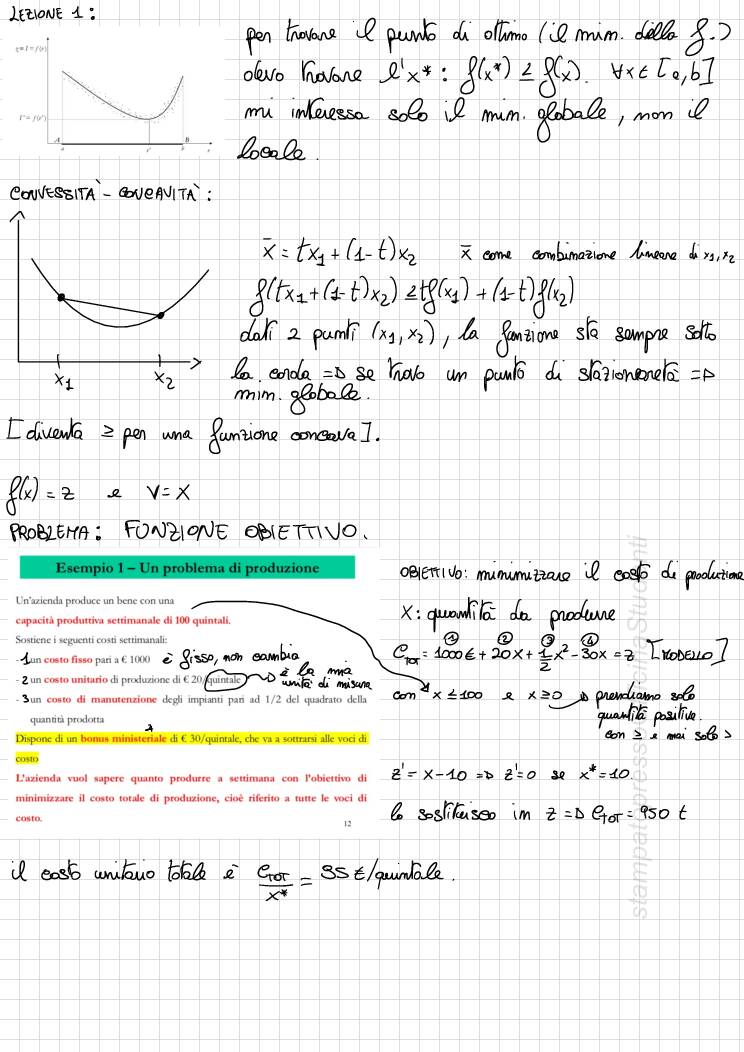 LEZIONE 1:
z = f = f(x)
f* = f(x*)
A
B
a
x*
b
x
per trovare il punto di ottimo (il min. della f.)
devo trovare l'x*: f(x*) ≤ f(x). ∀x∈[a,b]
mi interessa solo il min. globale, non il
locale.
CONVESSITA' - CONCAVITA':
x̄ = tx₁ + (1-t)x₂ x̄ come combinazione lineare di x₁,x₂
f(tx₁ + (1-t)x₂) ≤ tf(x₁) + (1-t)f(x₂)
dati 2 punti (x₁,x₂), la funzione sta sempre sotto
la corda => se trovo un punto di stazionarietà =>
min. globale.
x₁
x₂
[diventa ≥ per una funzione concava].
f(x) = z e V = X
PROBLEMA: FUNZIONE OBIETTIVO.
Esempio 1 – Un problema di produzione
Un'azienda produce un bene con una
capacità produttiva settimanale di 100 quintali.
Sostiene i seguenti costi settimanali:
- 1 un costo fisso pari a € 1000 è fisso, non cambia
- 2 un costo unitario di produzione di € 20/quintale è la mia
unità di misura
- 3 un costo di manutenzione degli impianti pari ad 1/2 del quadrato della
quantità prodotta
4
Dispone di un bonus ministeriale di € 30/quintale, che va a sottrarsi alle voci di
costo
L'azienda vuol sapere quanto produrre a settimana con l'obiettivo di
minimizzare il costo totale di produzione, cioè riferito a tutte le voci di
costo.
12
OBIETTIVO: minimizzare il costo di produzione
X: quantità da produrre
① ② ③ ④
C_TOT = 1000€ + 20X + 1/2 x² - 30x = z [MODELLO]
con x ≤ 100 e x ≥ 0 prendiamo solo
quantità positive.
con ≥ e mai solo >
z' = x - 10 => z' = 0 se x* = 10.
lo sostituisco in z => C_TOT = 950 €
il costo unitario totale è C_TOT/x* = 95 €/quintale.